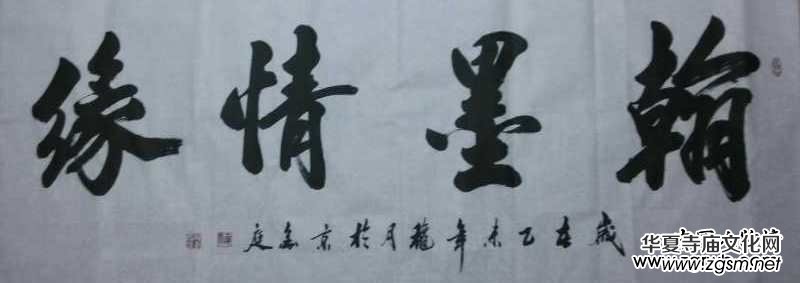 翰墨情缘
岁在乙未年龙月於京
庭
华夏寺庙文化网
www.zgsm.net